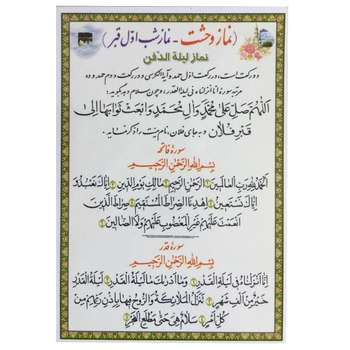 (نماز وحشت - نماز شب اول قبر)
نماز لیلة الدفن
دو رکعت است، در رکعت اول حمد و آیة الکرسی و در رکعت دوم حمد و ده
مرتبه سورۀ انا انزلناه فی لیلة القدر، و چون سلام دهد بگوید:
اَللّهُمَّ صَلِّ عَلى مُحَمَّدٍ وَآلِ مُحَمَّدٍ وَابْعَثْ ثَوابَها اِلى
قَبْرِ فُلان و به جای فلان، نام میت را ذکر نماید.
سورۀ فاتحه
بِسْمِ اللهِ الرَّحْمنِ الرَّحيمِ
اَلْحَمْدُ لِلّهِ رَبِّ الْعالَمينَ اَلرَّحْمنِ الرَّحيمِ مالِكِ يَوْمِ الدّينِ اِيّاكَ نَعْبُدُ وَ
اِيّاكَ نَسْتَعينُ اِهْدِنَا الصِّراطَ الْمُسْتَقيمَ صِراطَ الَّذينَ
اَنْعَمْتَ عَلَيْهِمْ غَيْرِ الْمَغْضُوبِ عَلَيْهِمْ وَلاَ الضّالّينَ
سورۀ قدر
بِسْمِ اللهِ الرَّحْمنِ الرَّحيمِ
اِنّا اَنْزَلْناهُ فى لَيْلَةِ الْقَدْرِ وَما اَدْريكَ ما لَيْلَةُ الْقَدْرِ لَيْلَةُ الْقَدْرِ
خَيْرٌ مِنْ اَلْفِ شَهْرٍ تَنَزَّلُ الْمَلائِكَةُ وَالرُّوحُ فيها بِاِذْنِ رَبِّهِمْ مِنْ
كُلِّ اَمْرٍ سَلامٌ هِىَ حَتّى مَطْلَعِ الْفَجْرِ